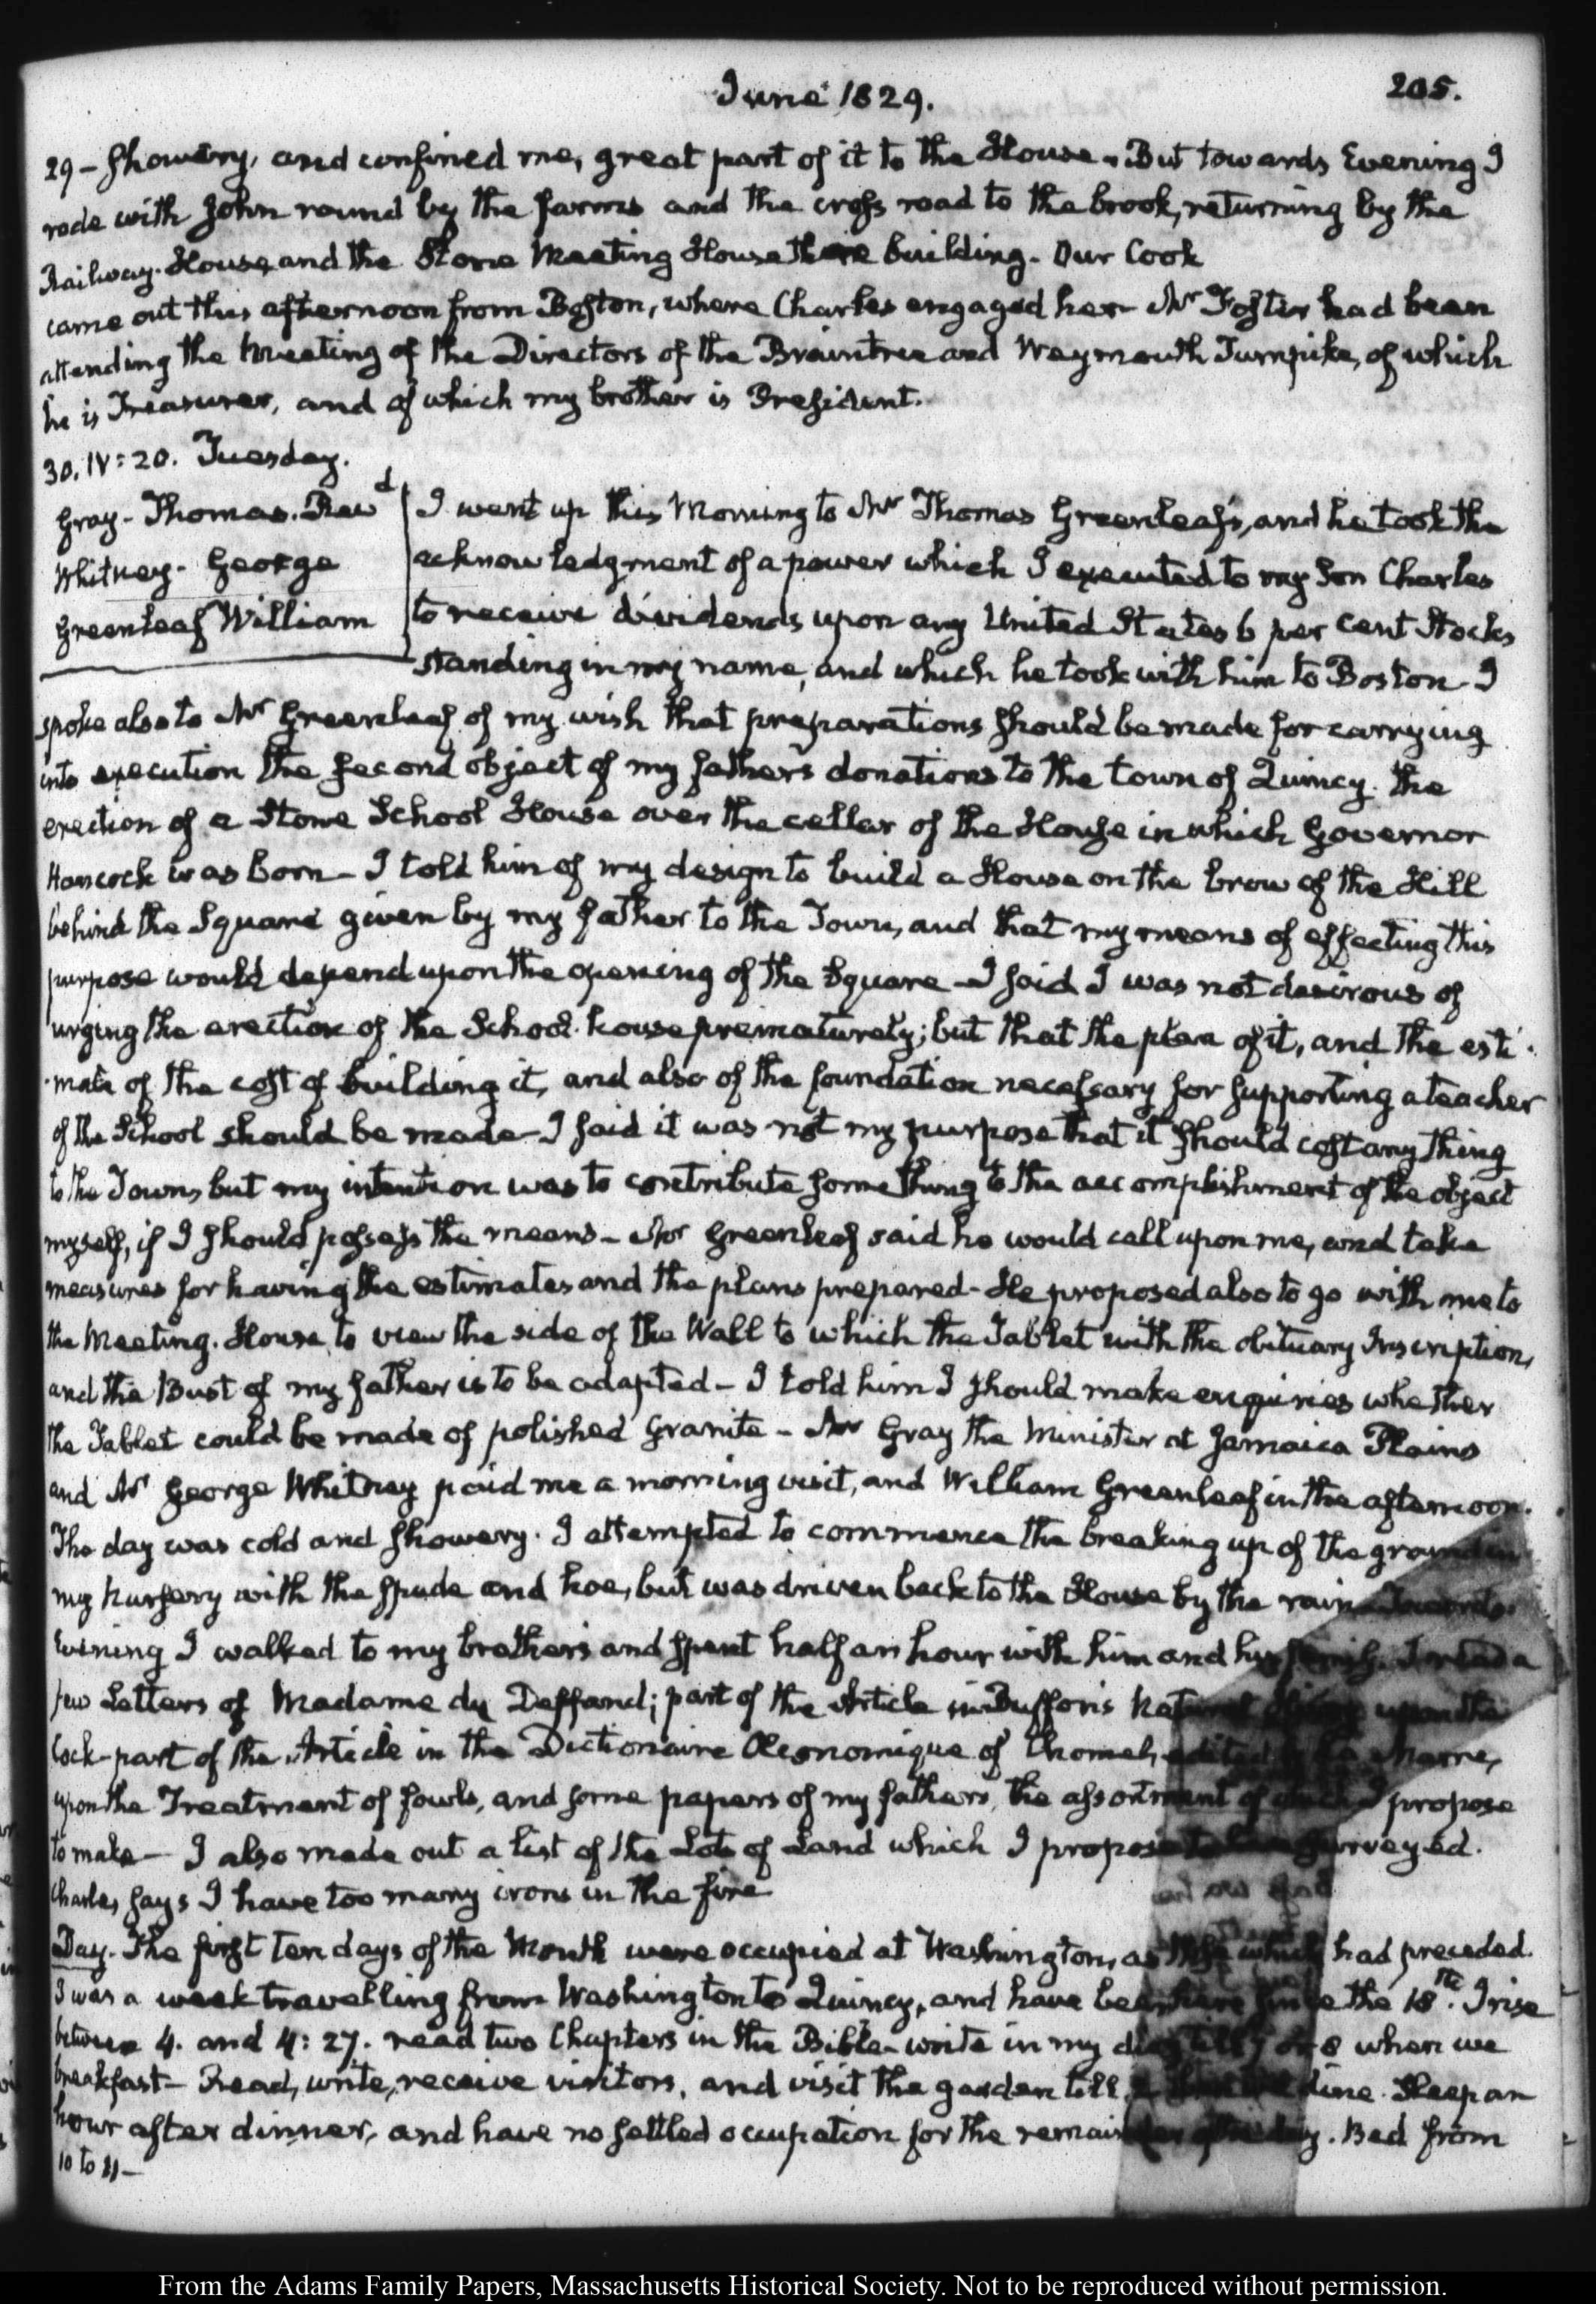 June 1829.
205.
29 - Showery, and confined me, great part of it to the House. But towards Evening I
rode with John round by the farms and the cross road to the brook, returning by the
Railway. House, and the Stone Meeting House there building. Our Cook
came out this afternoon from Boston, where Charles engaged her. Mr Foster had been
attending the Meeting of the Directors of the Braintree and Weymouth Turnpike, of which
he is Treasurer, and of which my brother is President.
30. IV: 20. Tuesday.
Gray - Thomas. Revd
Whitney - George
Greenleaf William
I went up this Morning to Mr Thomas Greenleaf's, and he took the
acknowledgment of a power which I executed to my Son Charles
to receive dividends upon any United States 6 per cent Stocks
standing in my name, and which he took with him to Boston - I
spoke also to Mr Greenleaf of my wish that preparations should be made for carrying
into execution the second object of my father's donations to the town of Quincy. the
erection of a Stone School House over the cellar of the House in which Governor
Hancock was born - I told him of my design to build a House on the brow of the Hill
behind the Square given by my father to the Town, and that my means of effecting this
purpose would depend upon the opening of the Square - I said I was not desirous of
urging the erection of the School-house prematurely; but that the plan of it, and the esti-
-mate of the cost of building it, and also of the foundation necessary for supporting a teacher
of the School should be made - I said it was not my purpose that it should cost any thing
to the Town, but my intention was to contribute something to the accomplishment of the object
myself, if I should possess the means - Mr Greenleaf said he would call upon me, and take
measures for having the estimates and the plans prepared - He proposed also to go with me to
the Meeting-House to view the side of the Wall to which the Tablet with the obituary Inscription,
and the Bust of my father is to be adapted - I told him I should make enquiries whether
the Tablet could be made of polished Granite - Mr Gray the Minister at Jamaica Plains
and Mr George Whitney paid me a morning visit, and William Greenleaf in the afternoon.
The day was cold and showery. I attempted to commence the breaking up of the ground in
my nursery with the spade and hoe, but was driven back to the House by the rain. Towards
Evening I walked to my brother's and spent half an hour with him and his family. I read a
few Letters of Madame du Deffand; part of the Article in Buffon's Natural History upon the
Cock - part of the Article in the Dictionaire Oeconomique of Chomel, edited by La Marre,
upon the Treatment of fowls, and some papers of my father's, the assortment of which I propose
to make - I also made out a list of the Lots of Land which I propose to have surveyed.
Charles says I have too many irons in the fire.
Day. The first ten days of the Month were occupied at Washington, as those which had preceded.
I was a week travelling from Washington to Quincy, and have been here since the 18th. I rise
between 4. and 4:27. read two Chapters in the Bible - write in my diary till 7 or 8 when we
breakfast - Read, write, receive visitors, and visit the garden till dine. Sleep an
hour after dinner, and have no settled occupation for the remainder of the day. Bed from
10 to 11 -
From the Adams Family Papers, Massachusetts Historical Society. Not to be reproduced without permission.